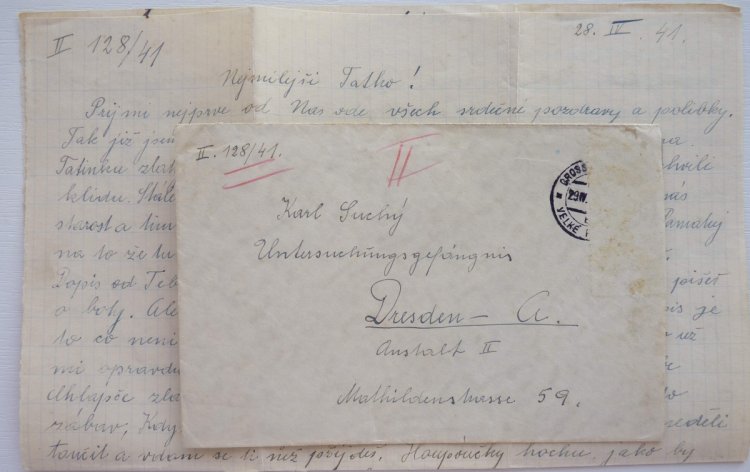 II 128/41
28. IV. 41.
Nejmilejší Taťko!
Přijmi nejprve od Nás ode všech srdečné pozdravy a polibky.
Tak již jsem
Tatínku zlat
chvíli
klidu. Stále
nás
starost a tím
Pamatuj
na to že tu
Dopis od Teb
píšeš
o boty. Ale
to co není
už
mi opravdu
chlapče zla
to
zábav, Kdy
neděli
tančit a vdám se k než přijdeš. Houpoučký hochu, jako by
II. 128/41.
II
GROSS
29.IV.
VELKÉ
Karl Suchý
Untersuchungsgefängnis
Dresden - A.
Anstalt II
Mathildenstrasse 59.